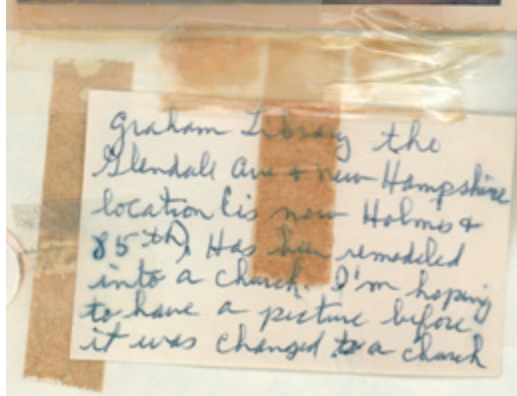 Graham Library the
Glendale Ave + new Hampshire
location (is now Holmes +
85th). Has been remodeled
into a church. I'm hoping
to have a picture before
it was changed to a church